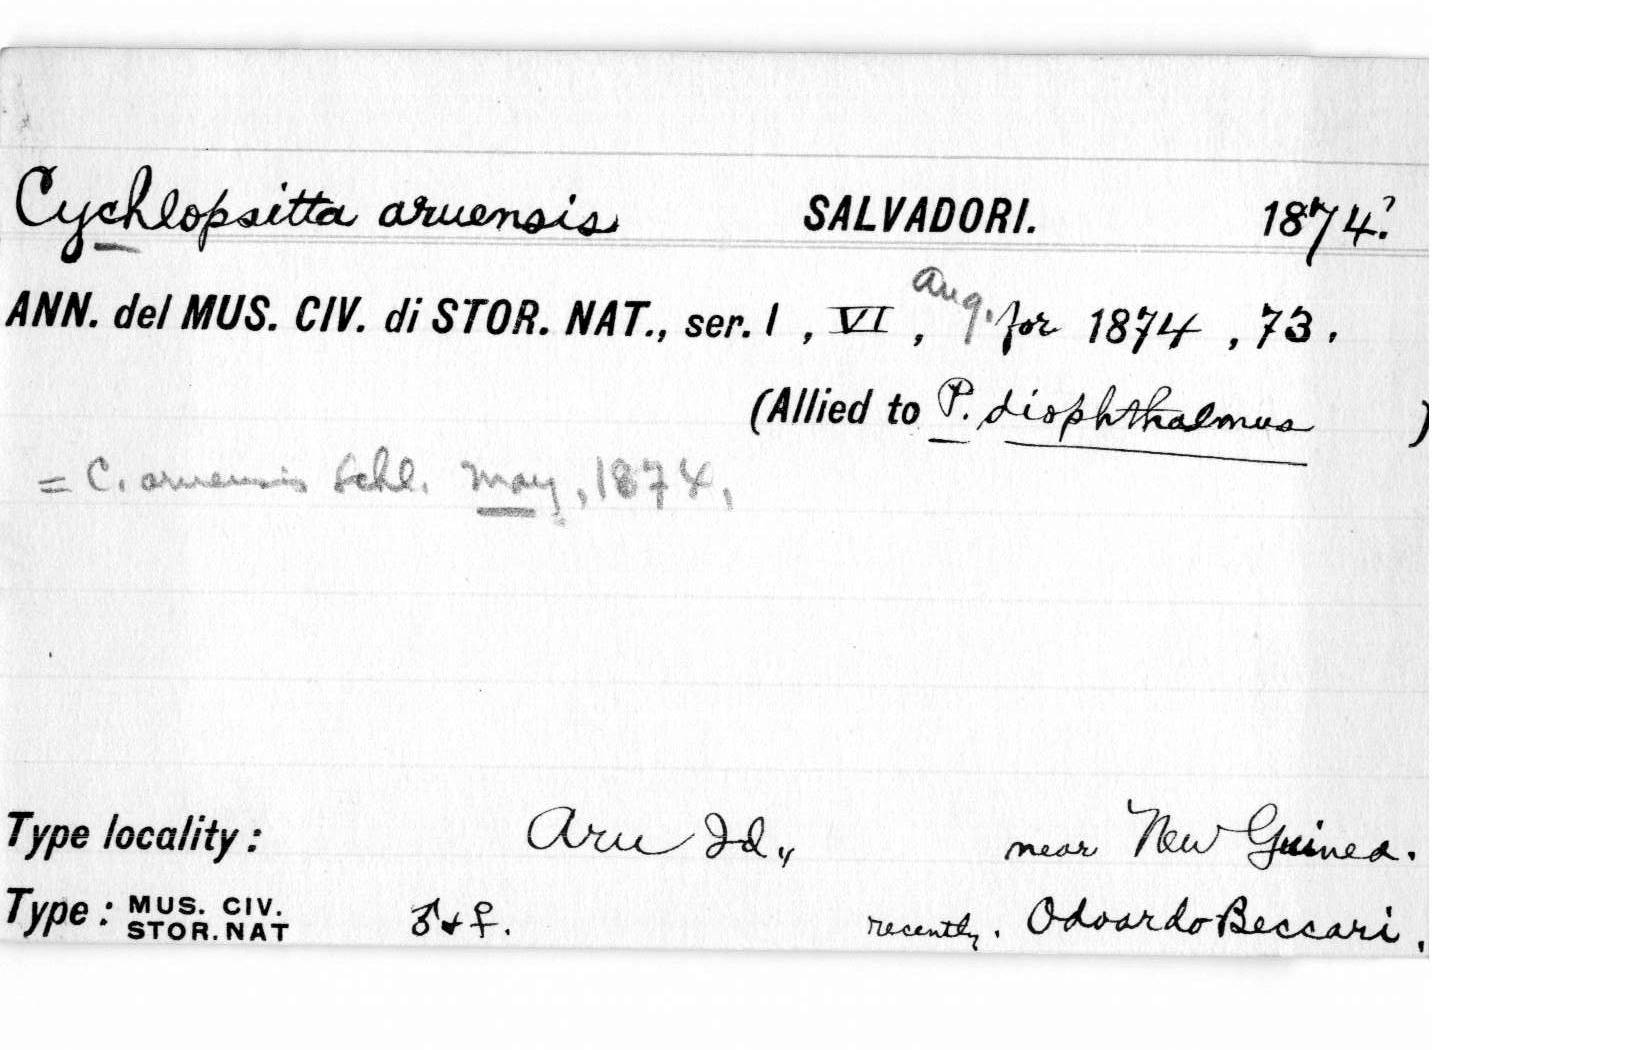 Cychlopsitta aruensis SALVADORI. 1874?
ANN. del MUS. CIV. di STOR. NAT., ser. 1 , VI , Aug. for 1874 , 73 .
(Allied to P. diophthalmus )
= C. aruensis Schl. May, 1874,
Type locality : Aru Id., near New Guinea.
Type : MUS. CIV. STOR. NAT ♂ & ♀. recently. Odoardo Beccari .